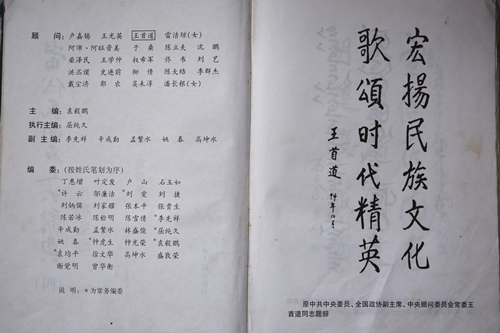 顾 问：卢嘉锡 王光英 王首道 雷洁琼(女)
阿沛·阿旺晋美 于 桑 陈立夫 沈 鹏
柴泽民 王学仲 权希军 佟 韦 刘 艺
洪丕谟 史进前 柳 倩 陈大络 李群杰
戴宏济 郎 农 吴未淳 潘长根(女)
主 编：袁毅鹏
执行主编：屈纯久
副主编：李先祥 辛成勤 孟繁水 姚 春 高坤水
编 委：(按姓氏笔划为序)
丁惠增 叶定发 卢 山 石玉如
*许 云 邬廉洁 *刘 雯 刘 捷
刘炳儒 刘家耀 张本平 张贵生
陈若冰 陈松明 陈雪倩 *李先祥
辛成勤 孟繁水 林盛俊 *屈纯久
姚 春 *钟虎生 钟光荣 *袁毅鹏
*袁均平 徐文华 高坤水 盛敦荣
谢觉明 曾华衡
说 明：*为常务编委
宏揚民族文化
歌頌时代精英
王首道
原中共中央委员、全国政协副主席、中央顾问委员会常委王
首道同志题辞